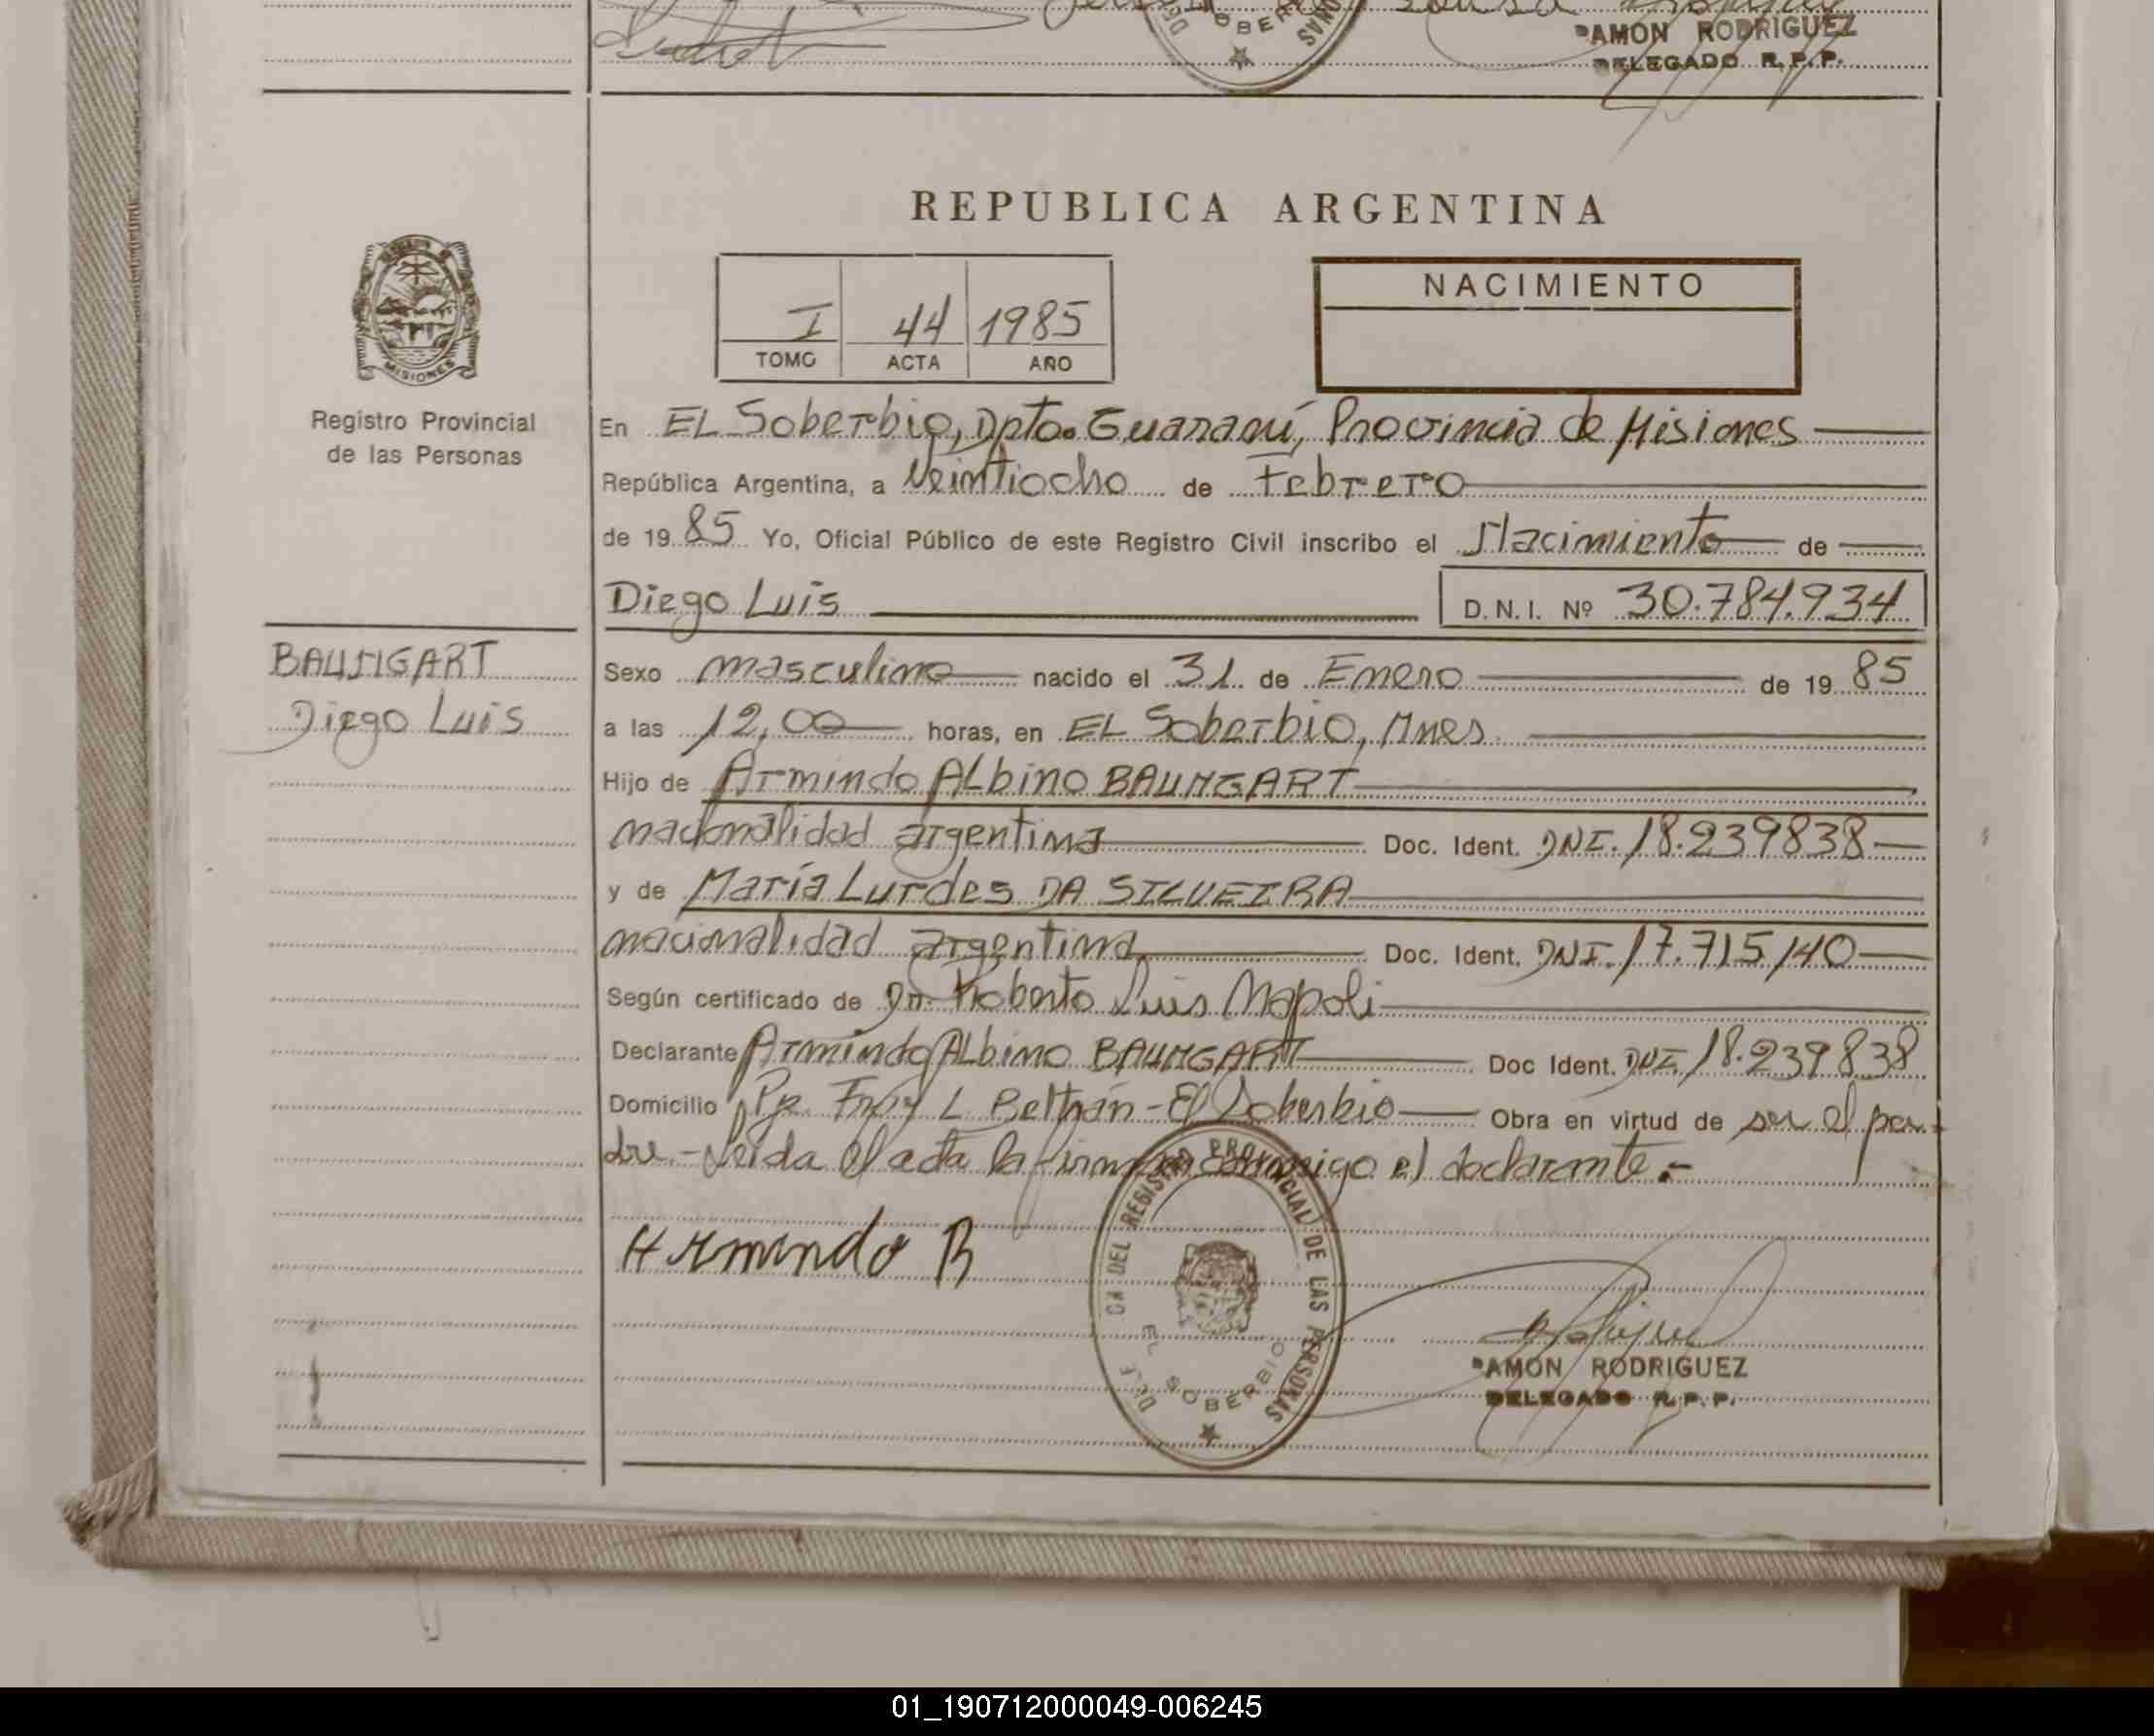 DE
OBER
NAS
RAMON RODRIGUEZ
DELEGADO R.P.P.
REPUBLICA ARGENTINA
MISIONES
Registro Provincial
de las Personas
I 44 1985
TOMO ACTA AÑO
NACIMIENTO
En EL Soberbio, Dpto. Guaraní, Provincia de Misiones
República Argentina, a Veintiocho de Febrero
de 19 85 Yo, Oficial Público de este Registro Civil inscribo el Nacimiento de
Diego Luis D.N.I. Nº 30.784.934
BAUMGART
Diego Luis
Sexo masculino nacido el 31 de Enero de 19 85
a las 12,00 horas, en EL Soberbio, Mnes.
Hijo de Armindo ALbino BAUMGART
nacionalidad argentina Doc. Ident. DNI. 18.239838
y de María Lurdes DA SILVEIRA
nacionalidad argentina Doc. Ident. DNI. 17.715140
Según certificado de Dr. Roberto Luis Napoli
Declarante Armindo ALbino BAUMGART Doc Ident. DNI 18.239838
Domicilio Pje. Fray L Beltrán - El Soberbio Obra en virtud de ser el pa-
dre - Leida el acta la firma conmigo el declarante.-
Armindo B
DELE CN DEL REGISTRO PROVINCIAL DE LAS PERSONAS
EL SOBERBIO
RAMON RODRIGUEZ
DELEGADO R.P.P.
01_190712000049-006245